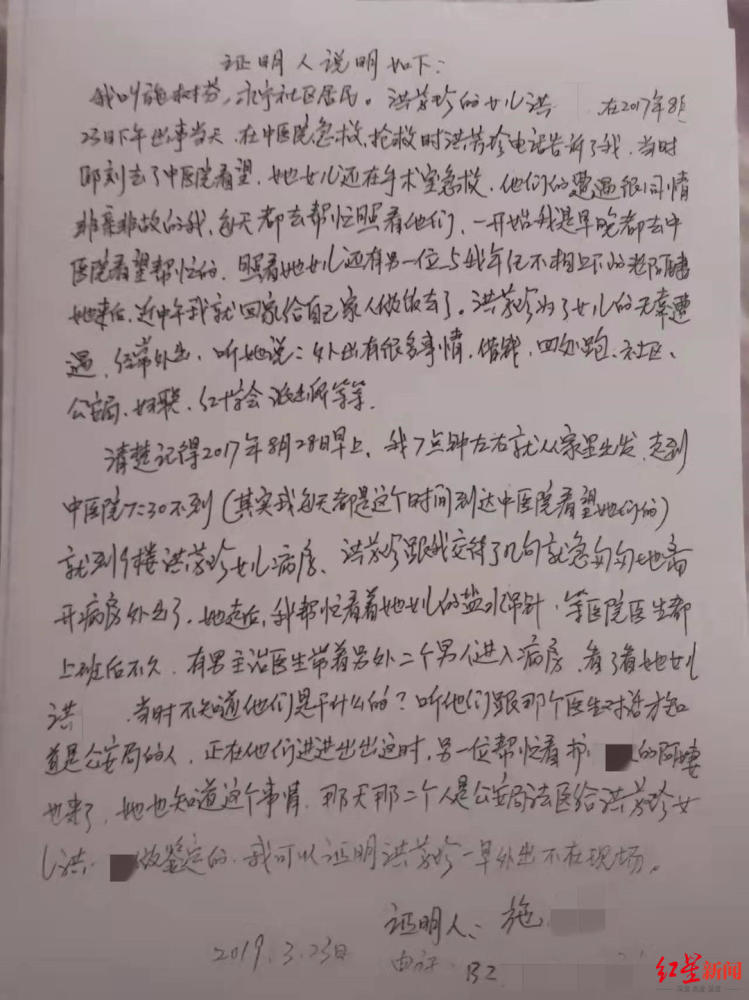 证明人说明如下：
我叫施树芬，永宁社区居民。洪芳珍的女儿洪 在2017年8月
23日下午出事当天，在中医院急救，抢救时洪芳珍电话告诉了我，当时
即刻去了中医院看望，她女儿还在手术室急救，他们的遭遇很同情
非亲非故的我，每天都去帮忙照看他们，一开始我是早晚都去中
医院看望帮忙的，照看她女儿还有另一位与我年纪不相上下的老阿姨
她来后，近中午我就回家给自己家人做饭去了。洪芳珍为了女儿的无辜遭
遇，经常外出，听她说：外出有很多事情，借钱，四处跑，社区、
公安局、妇联、红十字会 派出所等等。
清楚记得2017年8月28日早上，我7点钟左右就从家里出发，走到
中医院7:30不到（其实我每天都是这个时间到达中医院看望她们的）
就到9楼洪芳珍女儿病房，洪芳珍跟我交待了几句就急匆匆地离
开病房外出了，她走后，我帮忙看着她女儿的盐水吊针，等医院医生都
上班后不久，有男主治医生带着另外二个男人进入病房，看了看她女儿
洪 当时不知道他们是干什么的？听他们跟那个医生对话才知
道是公安局的人，正在他们进进出出这时，另一位帮忙看护 的阿姨
也来了，她也知道这个事情，那天那二个人是公安局法医给洪芳珍女
儿洪 做鉴定的，我可以证明洪芳珍一早外出不在现场。
证明人：施
2019.3.23日 电话 132
红星新闻